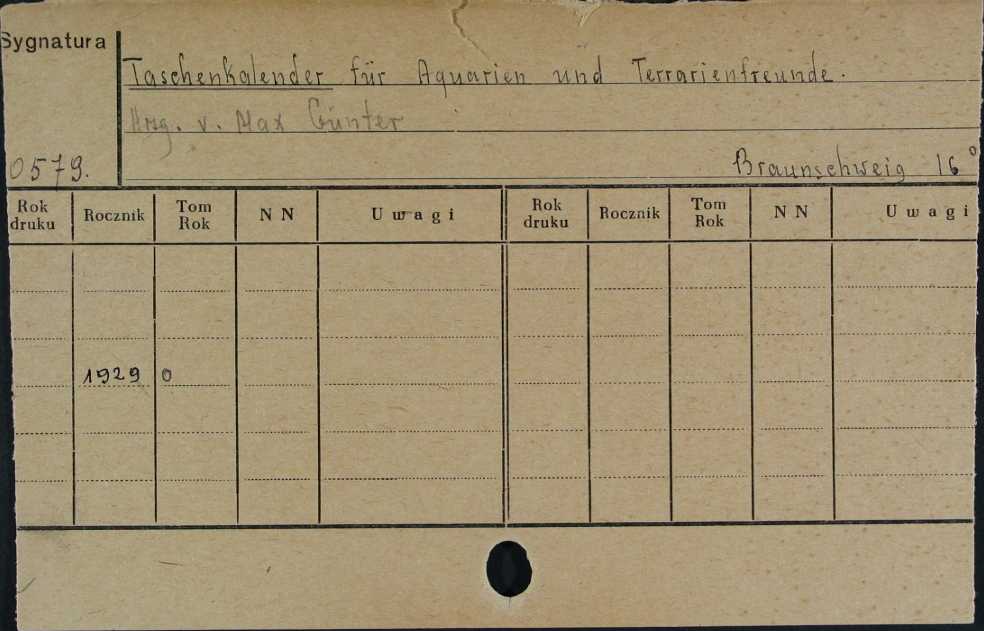 Sygnatura
Taschenkalender für Aquarien und Terrarienfreunde.
Hrsg. v. Max Günter
0579.
Braunschweig 16°
Rok druku Rocznik Tom Rok NN Uwagi Rok druku Rocznik Tom Rok NN Uwagi
1929 0